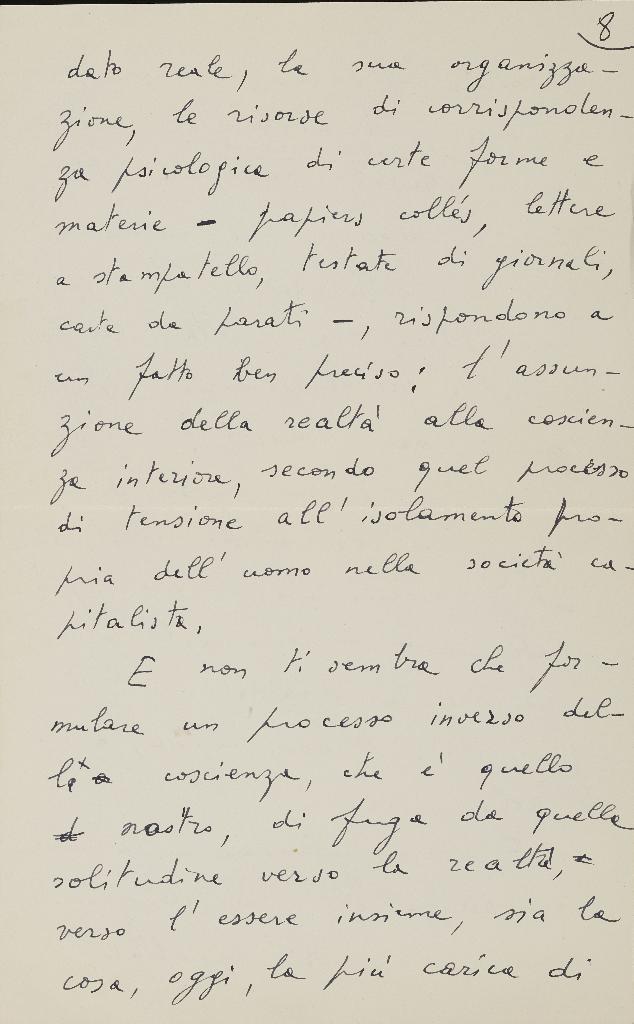 8
dato reale, la sua organizza-
zione, le risorse di corrisponden-
za psicologica di certe forme e
materie - papiers collés, lettere
a stampatello, testate di giornali,
carta da parati -, rispondono a
un fatto ben preciso: l'assun-
zione della realtà alla coscien-
za interiore, secondo quel processo
di tensione all'isolamento pro-
pria dell'uomo nella società ca-
pitalista.
E non ti sembra che for-
mulare un processo inverso del-
la coscienza, che è quello
nostro, di fuga da quella
solitudine verso la realtà,
verso l'essere insieme, sia la
cosa, oggi, la più carica di